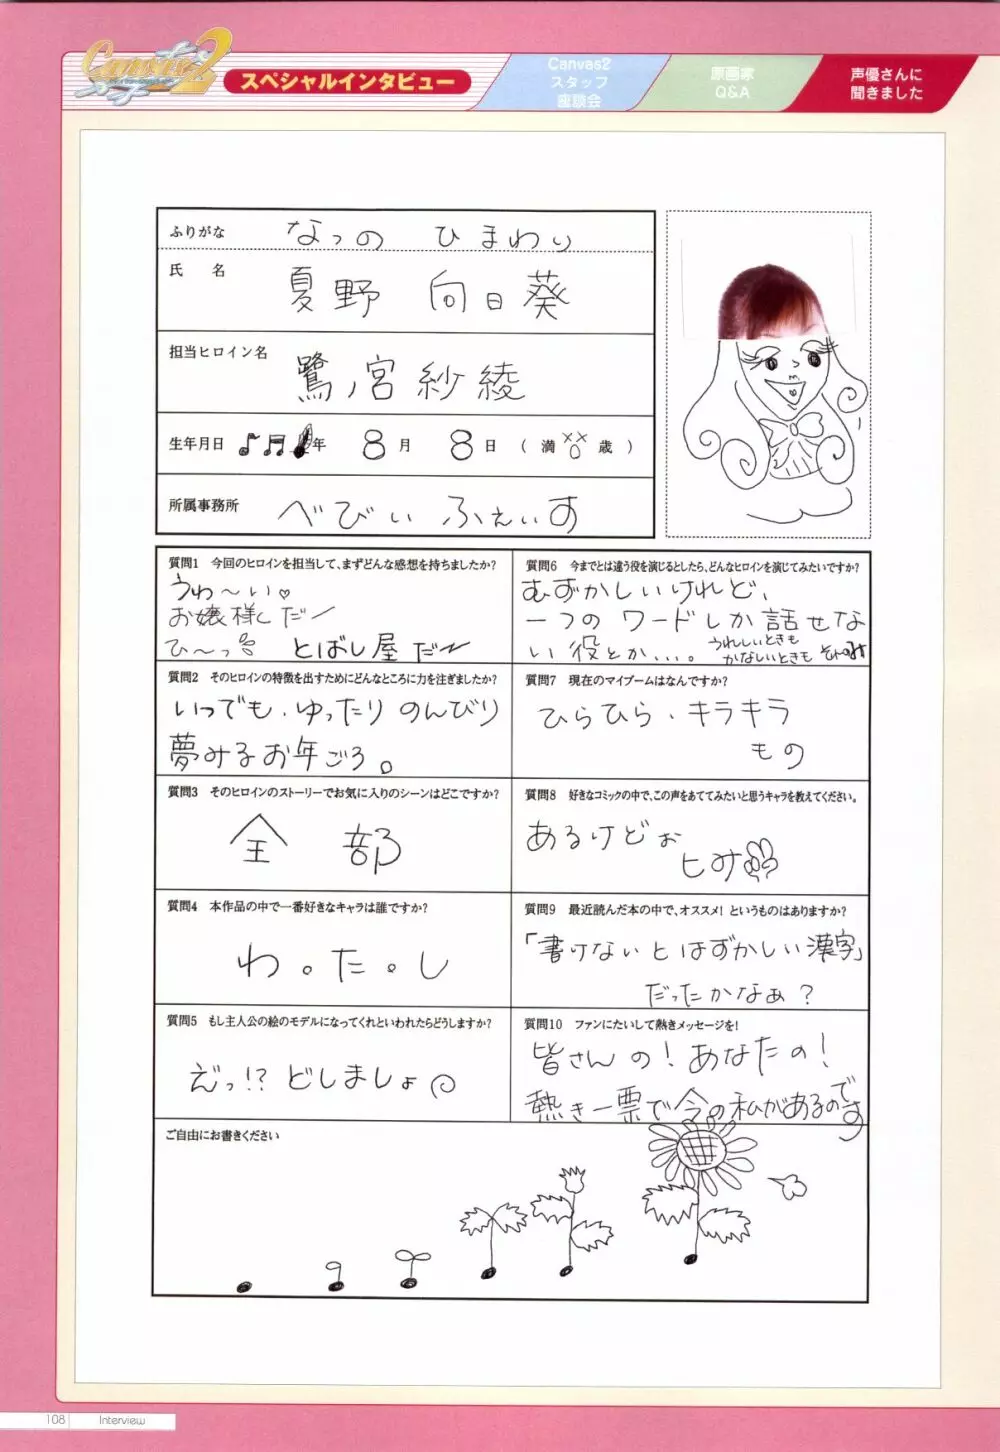 Canvas2
スペシャルインタビュー
Canvas2
スタッフ
座談会
原画家
Q&A
声優さんに
聞きました
ふりがな なつの ひまわり
氏 名 夏野 向日葵
担当ヒロイン名 鷺ノ宮紗綾
生年月日 ♪♬年 8月 8日 (満 ×× 歳)
所属事務所 べびぃ ふぇいす
質問1 今回のヒロインを担当して、まずどんな感想を持ちましたか?
うわ〜い♡
お嬢様だー
ひ〜っ とばし屋だー
質問2 そのヒロインの特徴を出すためにどんなところに力を注ぎましたか?
いつでも、ゆったり のんびり
夢みるお年ごろ。
質問3 そのヒロインのストーリーでお気に入りのシーンはどこですか?
全 部
質問4 本作品の中で一番好きなキャラは誰ですか?
わ。た。し
質問5 もし主人公の絵のモデルになってくれといわれたらどうしますか?
えっ!? どしましょ
質問6 今までとは違う役を演じるとしたら、どんなヒロインを演じてみたいですか?
むずかしいけれど、
一つの ワードしか話せな
い役とか...。うれしいときも
かなしいときも それのみ
質問7 現在のマイブームはなんですか?
ひらひら、キラキラ
もの
質問8 好きなコミックの中で、この声をあててみたいと思うキャラを教えてください。
あるけどぉ
ヒみ
質問9 最近読んだ本の中で、オススメ! というものはありますか?
「書けないとはずかしい漢字」
だったかなぁ?
質問10 ファンにたいして熱きメッセージを!
皆さんの! あなたの!
熱き一票で今の私があるのです
ご自由にお書きください
108 Interview